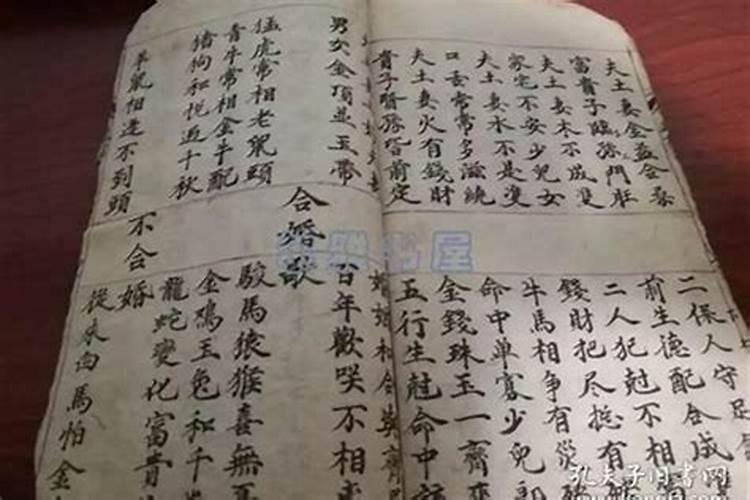 夫土妻金益合
富貴子臨孫門
夫土妻木不成雙
家宅不安少兒女
夫土妻水不是雙
口舌常常多滋繞
夫土妻火有錢財
貴子賢孫皆前定
二保人守足
前生德配合成
二人犯尅不相
錢財把尽総有
牛馬相争有災
命中單寡少兒郎
金錢珠玉一齊來
五行生尅命中該
婚姻和合
男女金頂並玉帶
猛虎常相老鼠頭
青牛常相金牛配
猪狗和悦過千秋
羊鼠相逢不到頭
合婚歌
百年歡咲不相
駿馬猿猴喜無
金鳮玉兔和千
龍蛇變化富貴
不合婚
從来白馬怕金
孔夫子旧書网